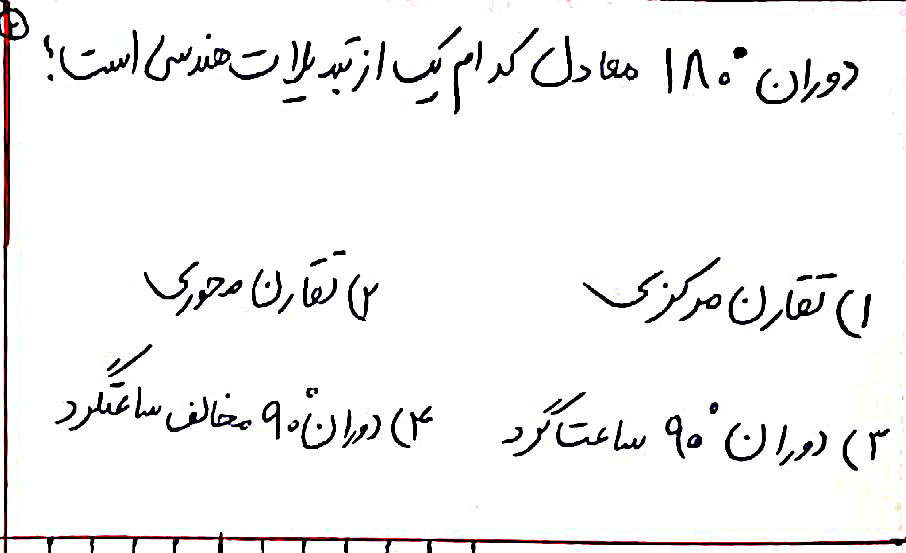 ۲
دوران ۱۸۰° معادل کدام یک از تبدیلات هندسی است؟
۱) تقارن مرکزی ۲) تقارن محوری
۳) دوران ۹۰° ساعتگرد ۴) دوران ۹۰° مخالف ساعتگرد